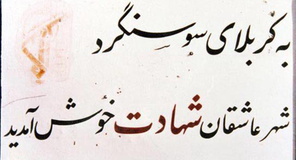 به کربلای سوسنگرد
شهر عاشقان شهادت خوش آمدید